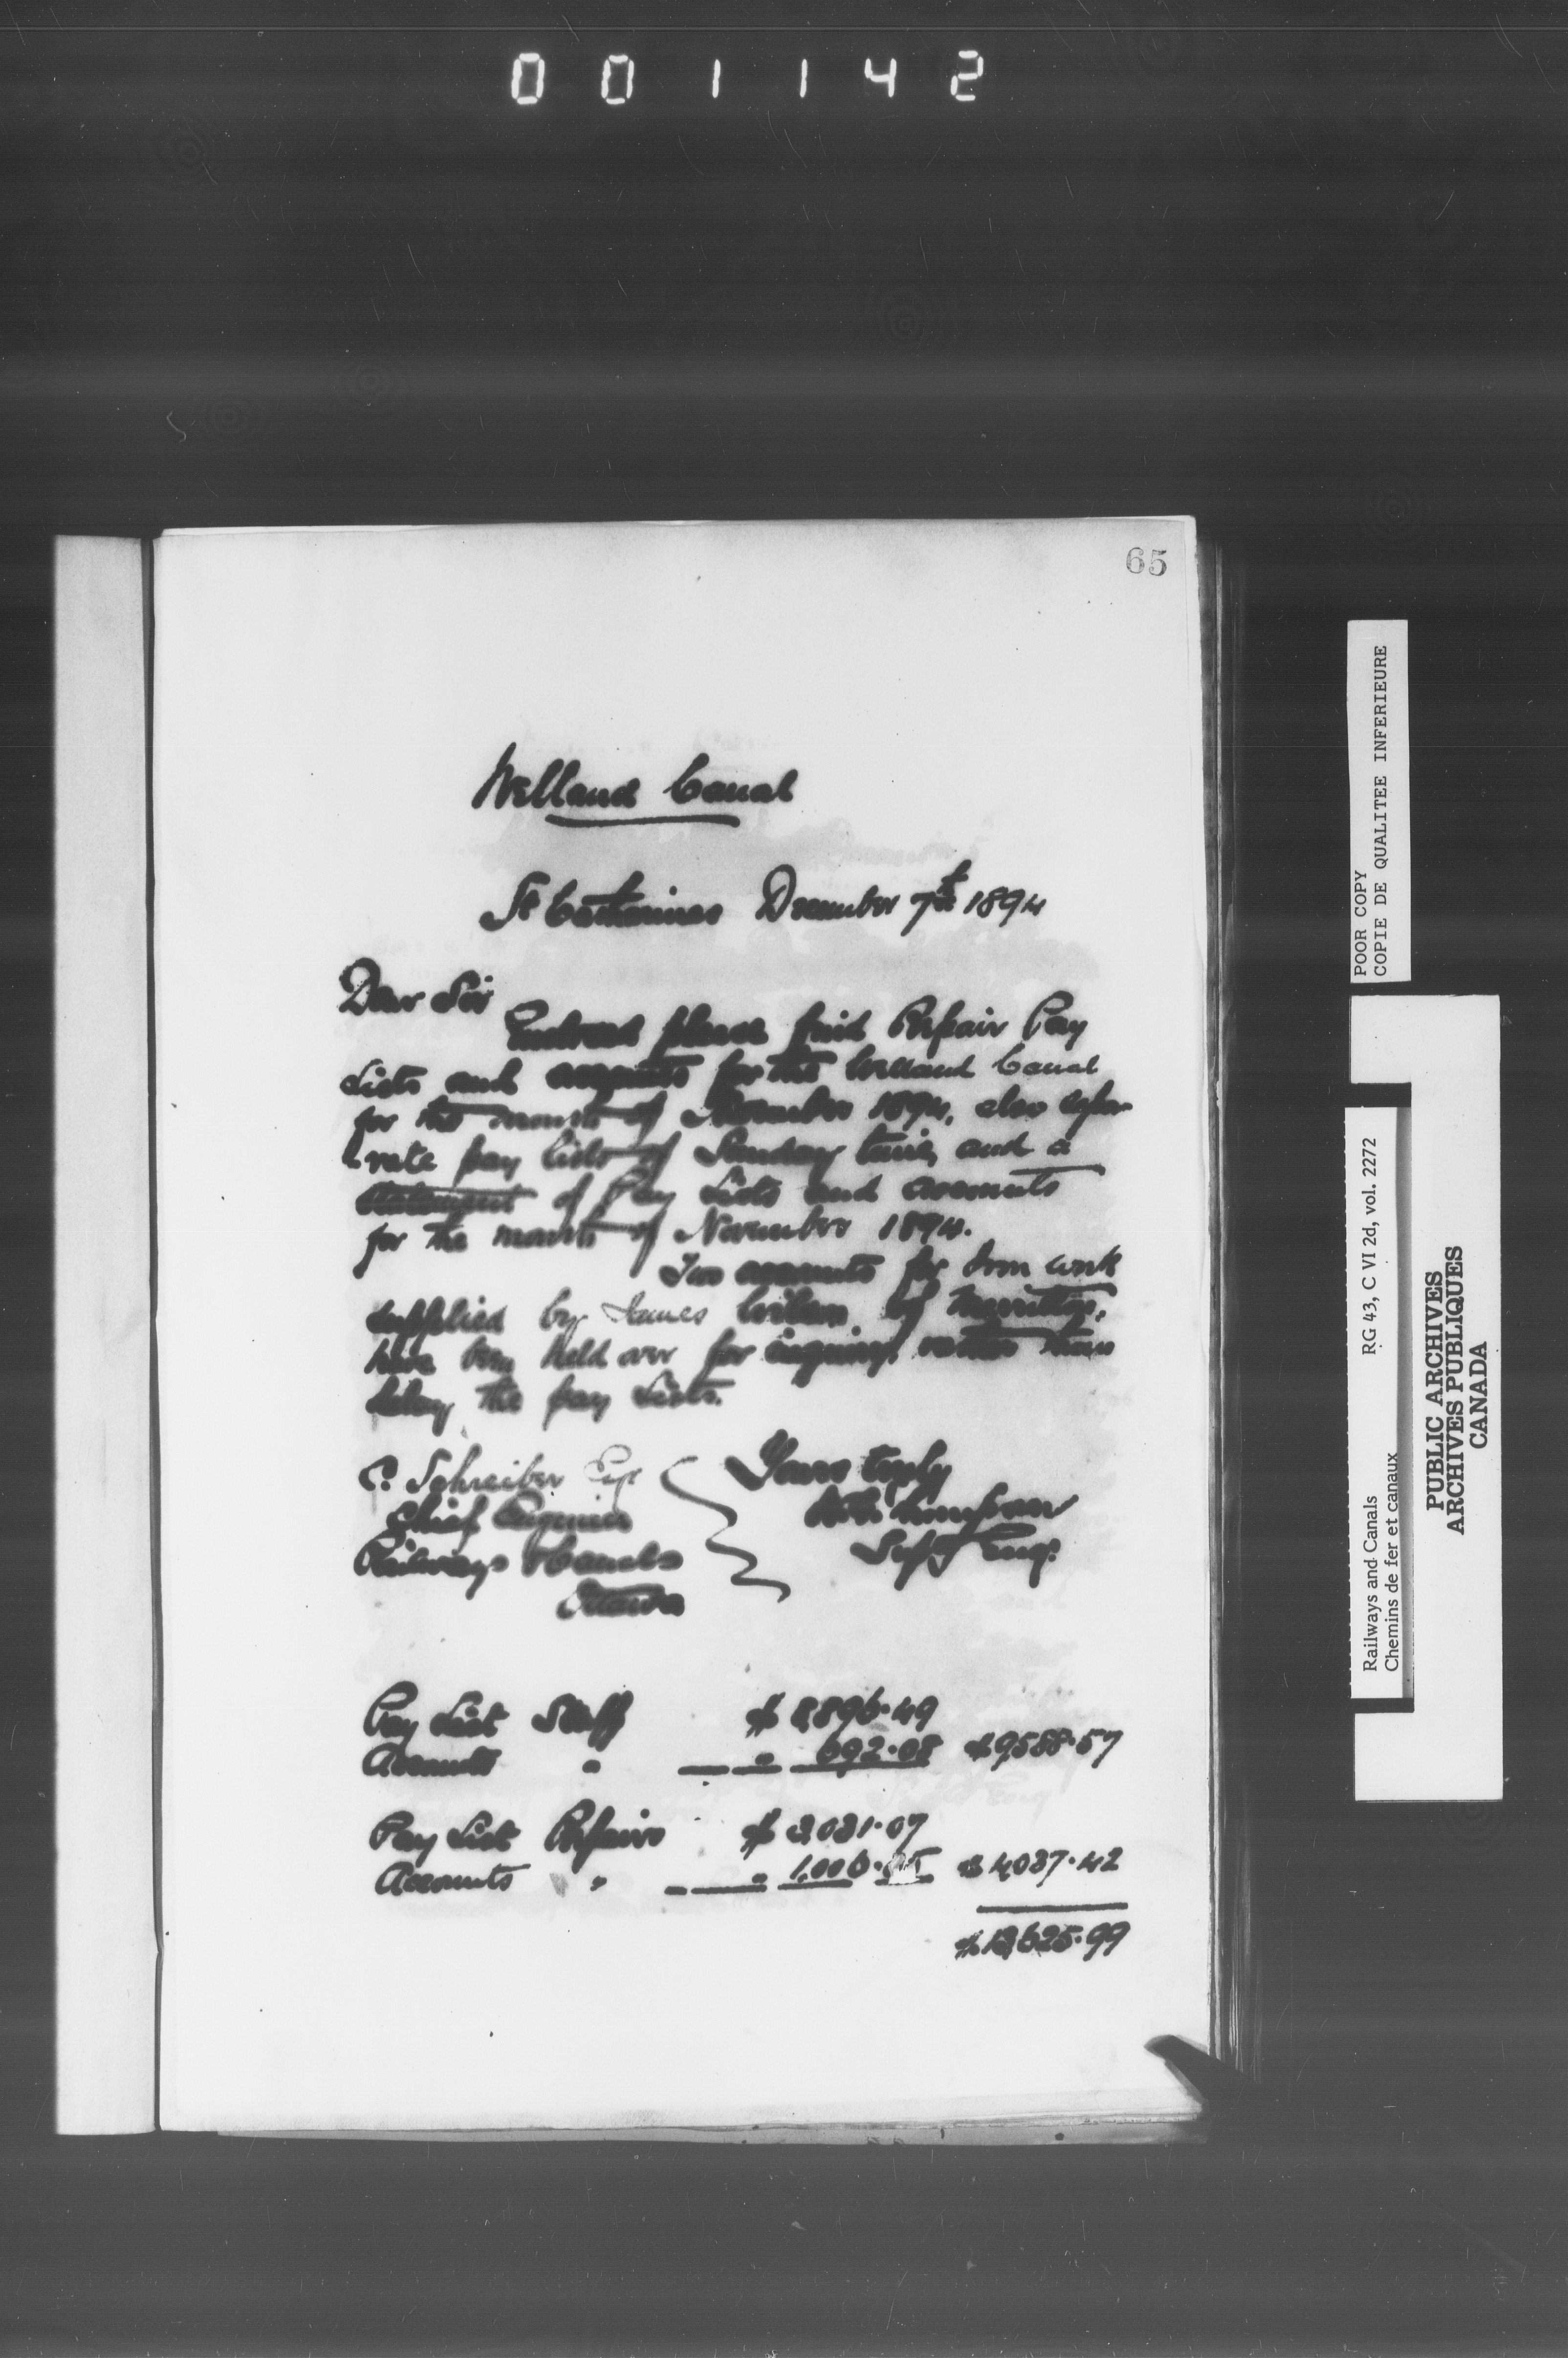 001142
65
Welland Canal
St Catharines December 7th 1894
Dear Sir
Enclosed please find Repair Pay
Lists and accounts for the Welland Canal
for the month of November 1894, also sepa-
-rate pay lists of Sunday time, and a
statement of Pay Lists and accounts
for the month of November 1894.
Two accounts for Iron work
supplied by James Wilson of Merritton,
have been held over for inquiry, rather than
delay the pay Lists.
C. Schreiber Esq
Chief Engineer
Railways & Canals
Ottawa
Yours truly
W. G. Thompson
Supt Eng.
Pay List Staff $ 8,896.49
Accounts " " 692.08 $9,588.57
Pay List Repairs $ 3,031.07
Accounts " " 1,006.35 $ 4,037.42
$ 13,625.99
POOR COPY
COPIE DE QUALITEE INFERIEURE
RG 43, C VI 2d, vol. 2272
Railways and Canals
Chemins de fer et canaux
PUBLIC ARCHIVES
ARCHIVES PUBLIQUES
CANADA